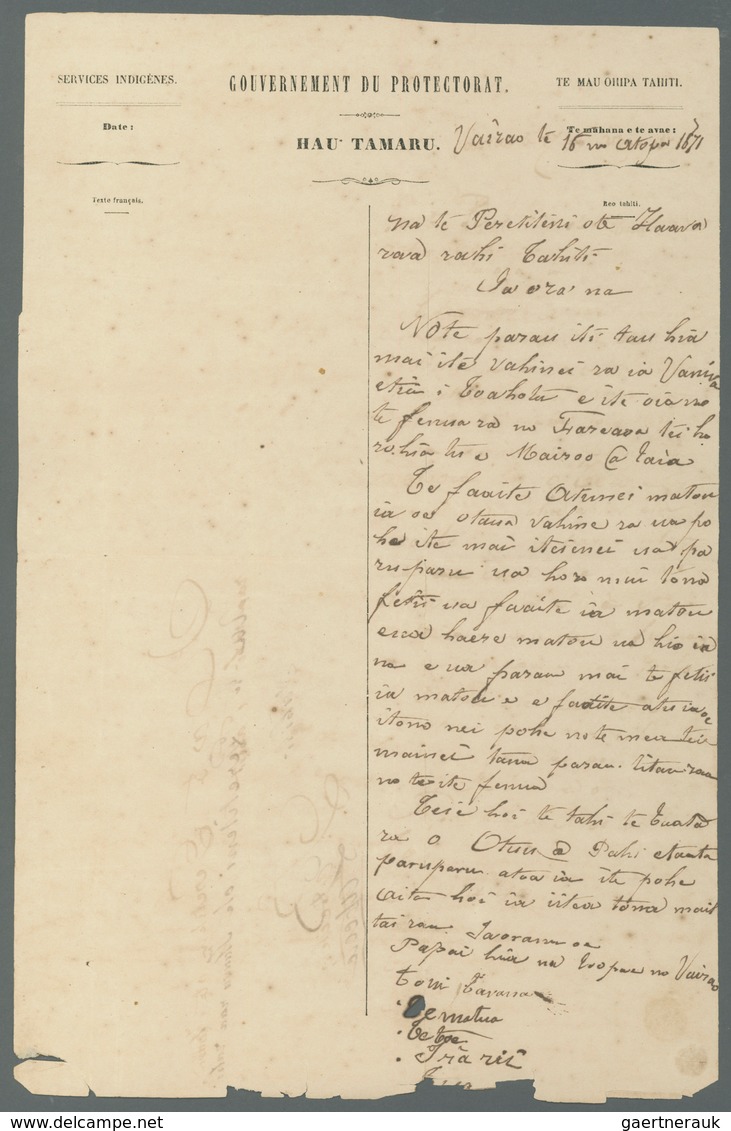 SERVICES INDIGÈNES.
GOUVERNEMENT DU PROTECTORAT.
TE MAU OHIPA TAHITI.
Date :
HAU TAMARU.
Te mahana e te avae :
Vairao te 16 no atopa 1871
Texte français.
Reo tahiti.
na te Peretiteni ote Haava
raa rahi Tahiti
Ia ora na
No te parau iti tau hia
mai ite vahinei ra ia
etia i Toahotu e ite oia no
te fenua ra no Fareaoa tei ho
ro.hia te e Mairoo @ Taia
Te faaite atunei matou
ia oe otaua vahine ra ua po
he ite mai iteienei ua pa
ruparu ua horo mai tona
fetii ua faaite ia matou
eua haere matou ua hio ia
na e ua parau mai te fetii
ia matou e e faaite atu ia oe
itona nei pohe note mea tei
mainei tana parau titauraa
no te ite fenua
Teie hoi te tahi te taata
ra o Otuu @ Pahi etaata
paruparu atoa ia ite pohe
aita hoi ia iitea tona mait
tai raa. Iaorana oe
Papai hia na Iropae no Vairao
Toni Tavana
Tematua
Tetoe